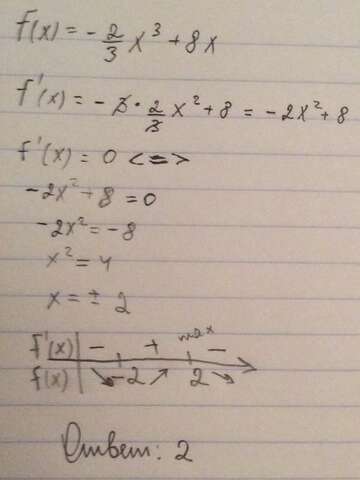 f(x) = - 2/3 x³ + 8x
f'(x) = - 3 · 2/3 x² + 8 = - 2x² + 8
f'(x) = 0 <=>
- 2x² + 8 = 0
- 2x² = - 8
x² = 4
x = ± 2
max
f'(x) | - + -
f(x) | ↘ -2 ↗ 2 ↘
Ответ: 2